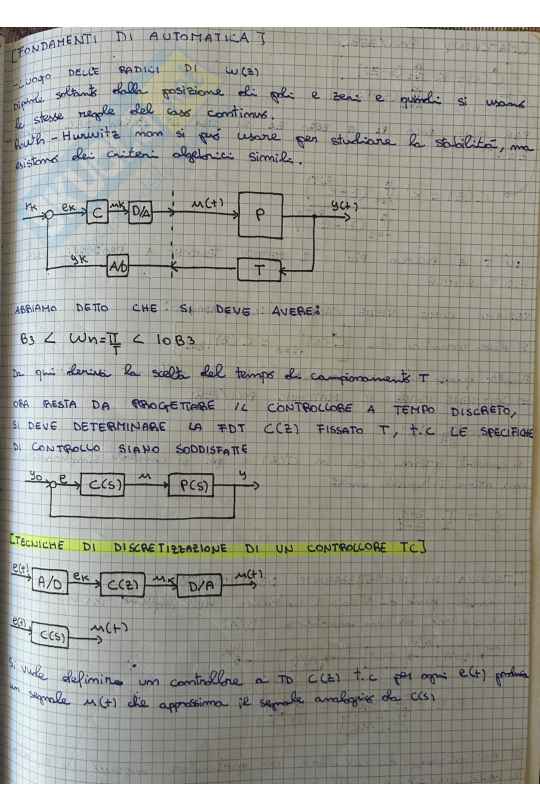 [FONDAMENTI DI AUTOMATICA]
- LUOGO DELLE RADICI DI W(z)
Dipende soltanto dalla posizione di poli e zeri e quindi si usano
le stesse regole del caso continuo.
Routh-Hurwitz non si può usare per studiare la stabilità, ma
esistono dei criteri algebrici simili.
rk ek C uk D/A u(t) P y(t)
yk A/D T
ABBIAMO DETTO CHE SI DEVE AVERE:
B3 < Wn = π/T < 10 B3
Da qui deriva la scelta del tempo di campionamento T.
ORA RESTA DA PROGETTARE IL CONTROLLORE A TEMPO DISCRETO,
SI DEVE DETERMINARE LA FDT C(Z) FISSATO T, t.c LE SPECIFICHE
DI CONTROLLO SIANO SODDISFATTE
yo e C(s) u P(s) y
[TECNICHE DI DISCRETIZZAZIONE DI UN CONTROLLORE TC]
e(t) A/D ek C(z) uk D/A u(t)
e(t) C(s) u(t)
Si vuole definire un controllore a TD C(z) t.c per ogni e(t) produca
un segnale u(t) che approssima il segnale analogico da C(s)